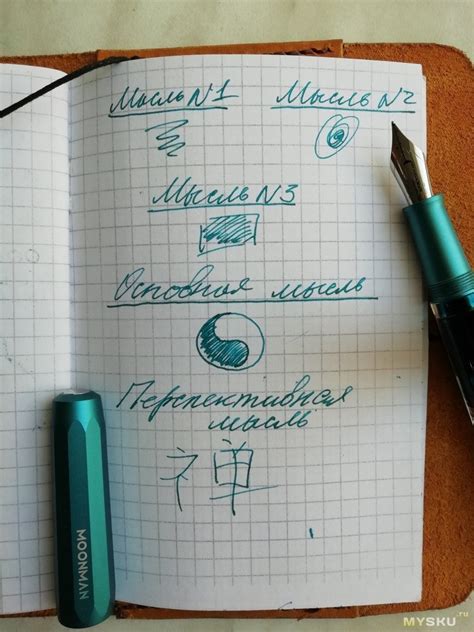 Мысль N1 Мысль N2
Мысль N3
Основная мысль
Перспективная
мысль
禅
MOONMAN
MYSKU.ru